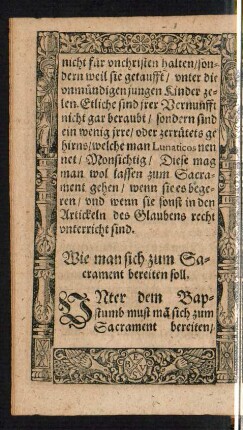 nicht für vnchristen halten/son-
dern weil sie getaufft/ vnter die
vnmündigen jungen Kinder ze-
len. Etliche sind jrer Vernunfft
nicht gar beraubt/ sondern sind
ein wenig jrre/ oder zerrütets ge
hirns/welche man Lunaticos nen
net/ Monsichtig/ Diese mag
man wol lassen zum Sacra-
ment gehen/ wenn sie es bege-
ren/ vnd wenn sie sonst in den
Artickeln des Glaubens recht
vnterricht sind.
Wie man sich zum Sa-
crament bereiten soll.
VNter dem Bap-
stumb must mã sich zum
Sacrament bereiten/